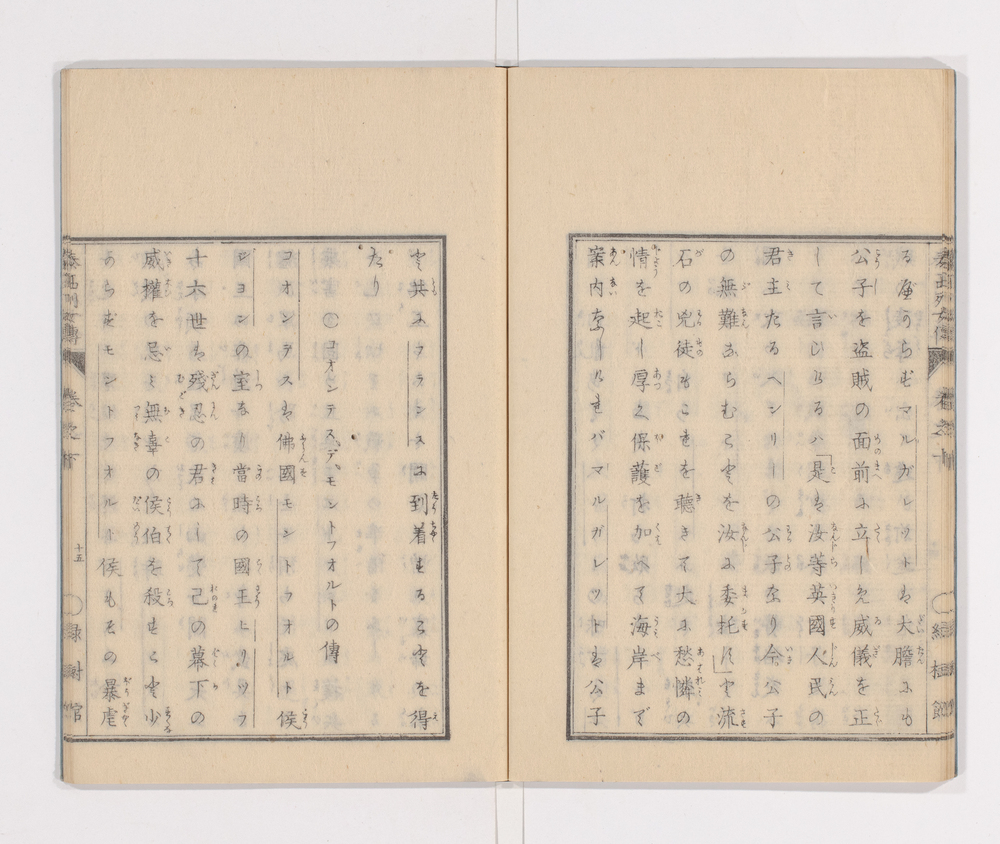 る屈せらむマルガレツトは大膽にも
公子を盗賊の面前に立しめ威儀を正
して言ひける八「是は汝等英國人民の
君主たるヘンリーの公子なり今公子
の無難ならむことを汝に委托す」と流
石の兇徒もこれを聴きて大に愁憐の
情を起し厚く保護を加へて海岸まで
案内なしけれバマルガレツトは公子
と共にフランスに到着することを得
たり
〇コオンテスデモントフオルトの傳
コオンテスは佛國モントフオルト侯
ジヨンの室なり當時の國王ヒリツフ
十六世は殘忍の君にして己の幕下の
威權を忌み無辜の侯伯を殺せしこと少
あらずモントフオルト侯もその暴虐
泰西列女傳
卷之下
十五